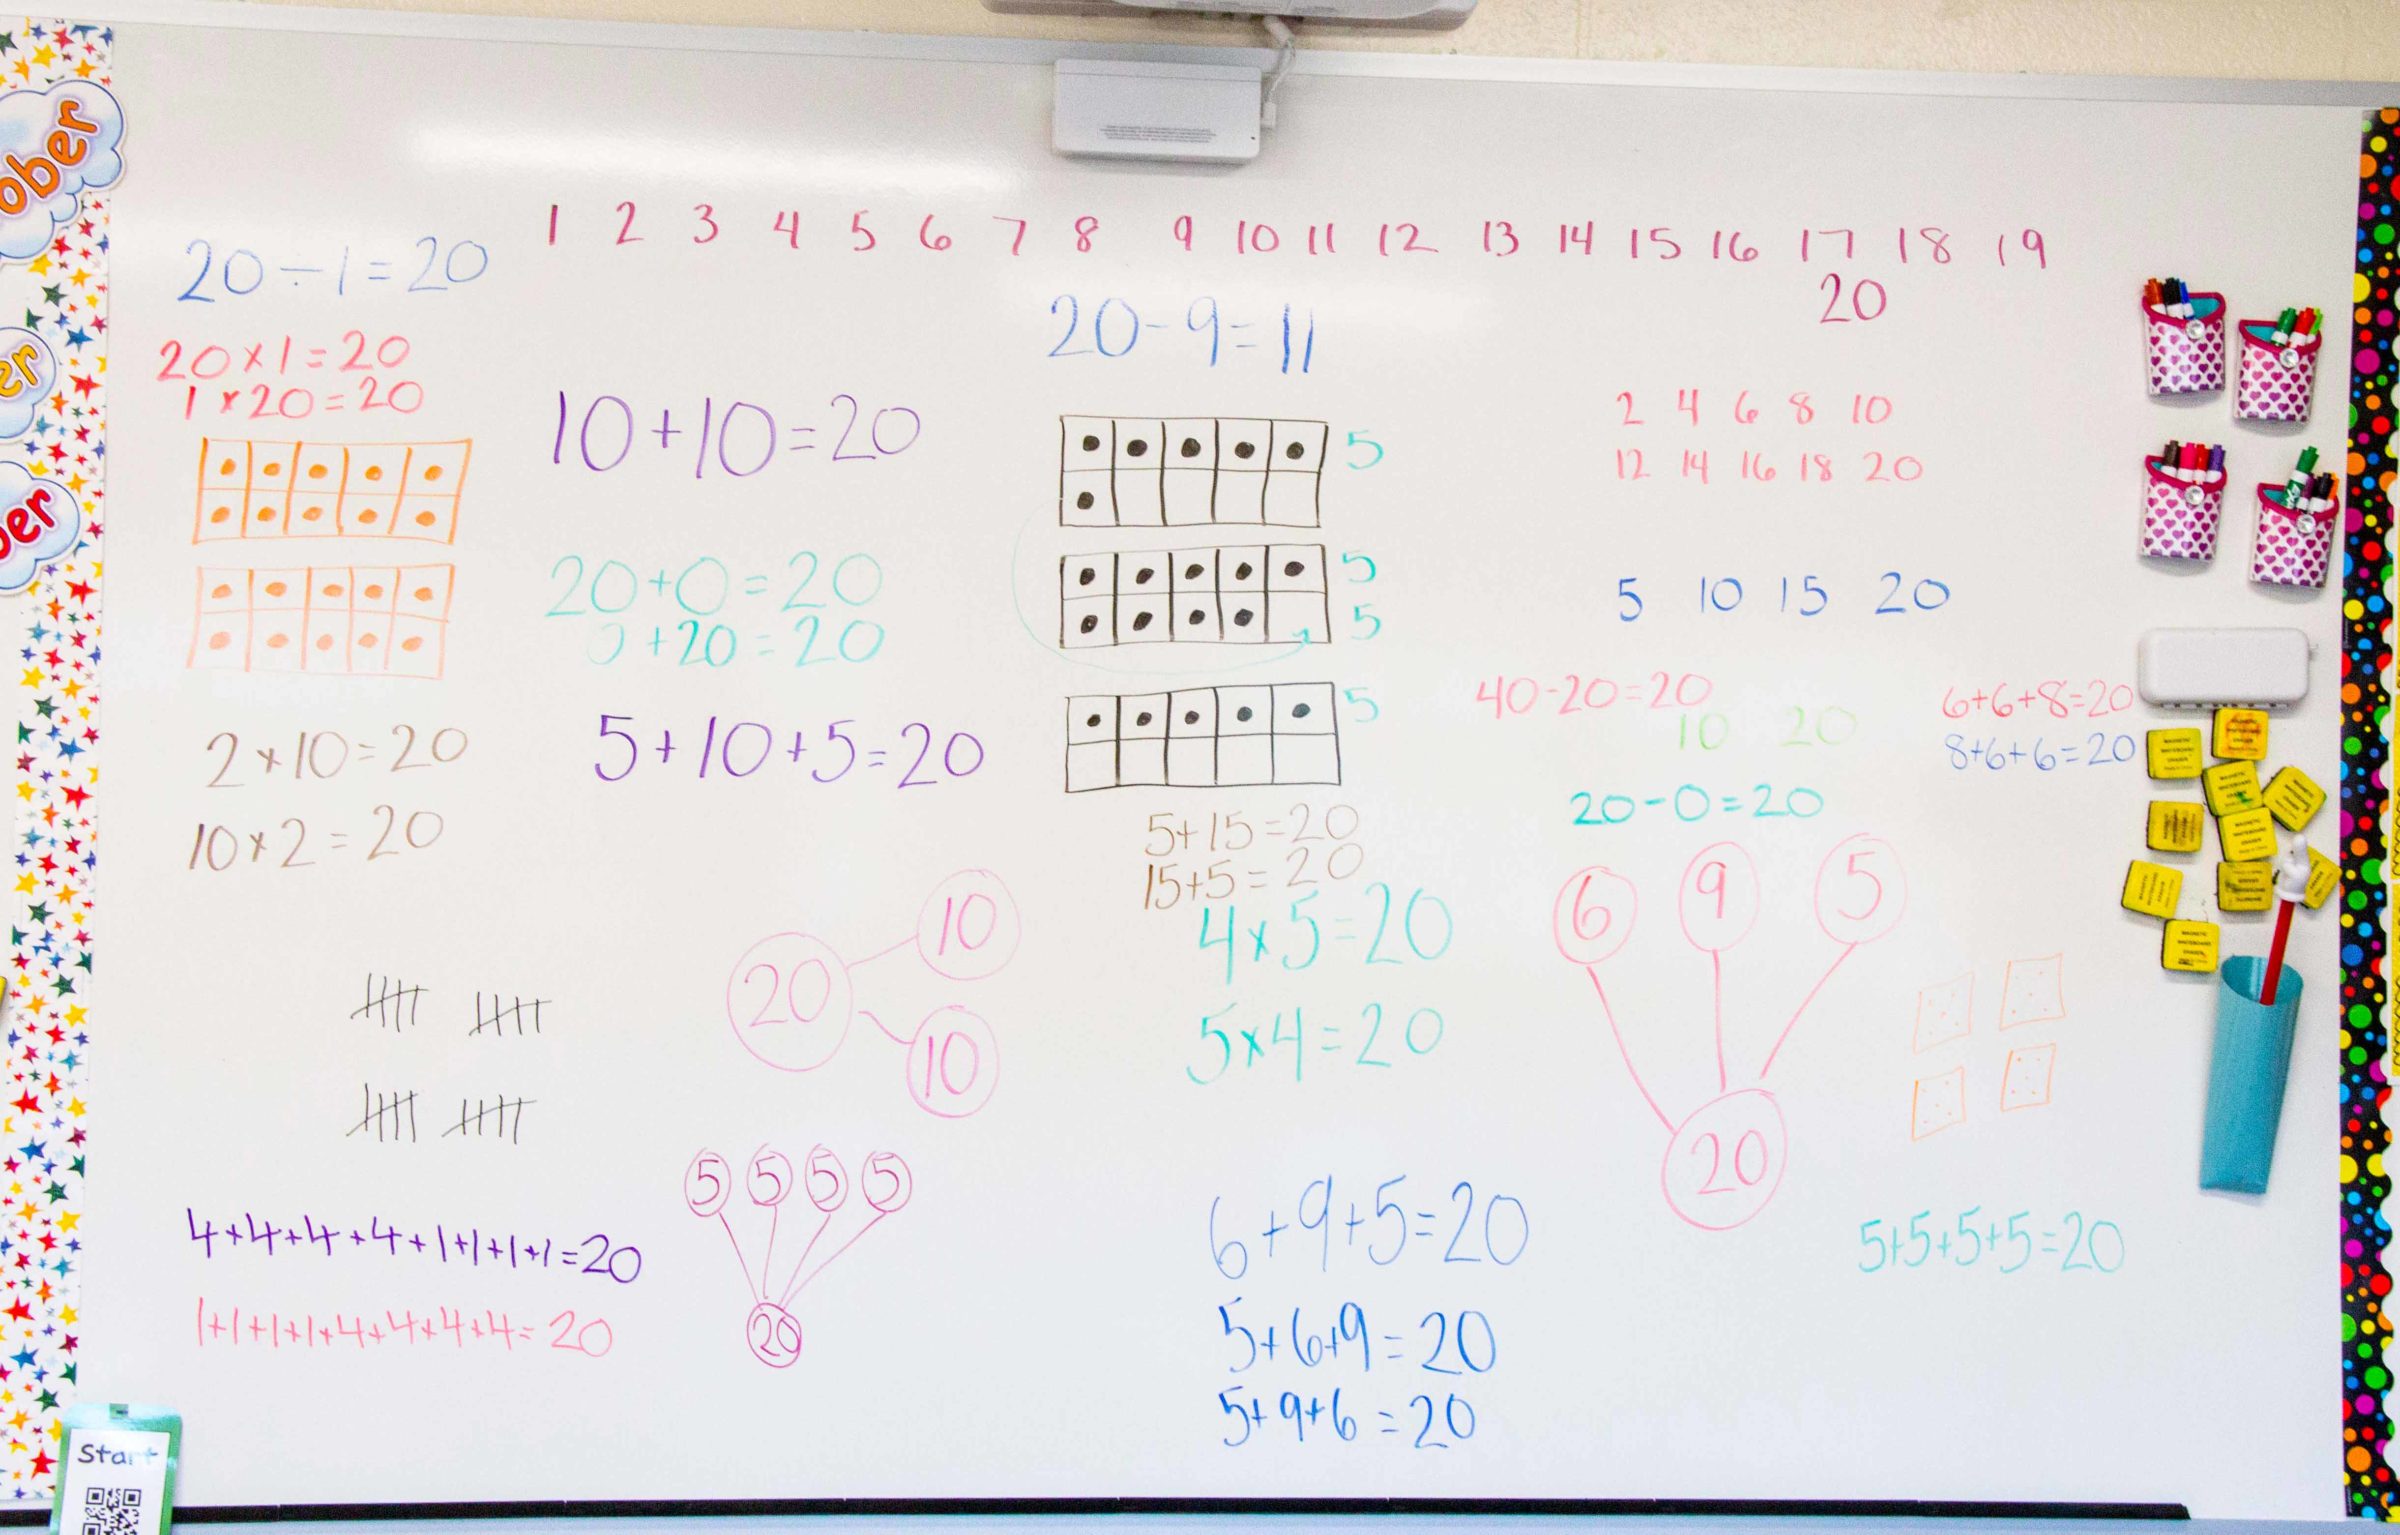 ober
er
ber
1 2 3 4 5 6 7 8 9 10 11 12 13 14 15 16 17 18 19
20
20÷1=20
20×1=20
1×20=20
2×10=20
10×2=20
10+10=20
20+0=20
0+20=20
5+10+5=20
20-9=11
5
5
5
5
5+15=20
15+5=20
4×5=20
5×4=20
2 4 6 8 10
12 14 16 18 20
5 10 15 20
40-20=20
10 20
20-0=20
6+6+8=20
8+6+6=20
20
10
10
5 5 5 5
20
6 9 5
20
4+4+4+4+1+1+1+1=20
1+1+1+1+4+4+4+4=20
6+9+5=20
5+6+9=20
5+9+6=20
5+5+5+5=20
Start